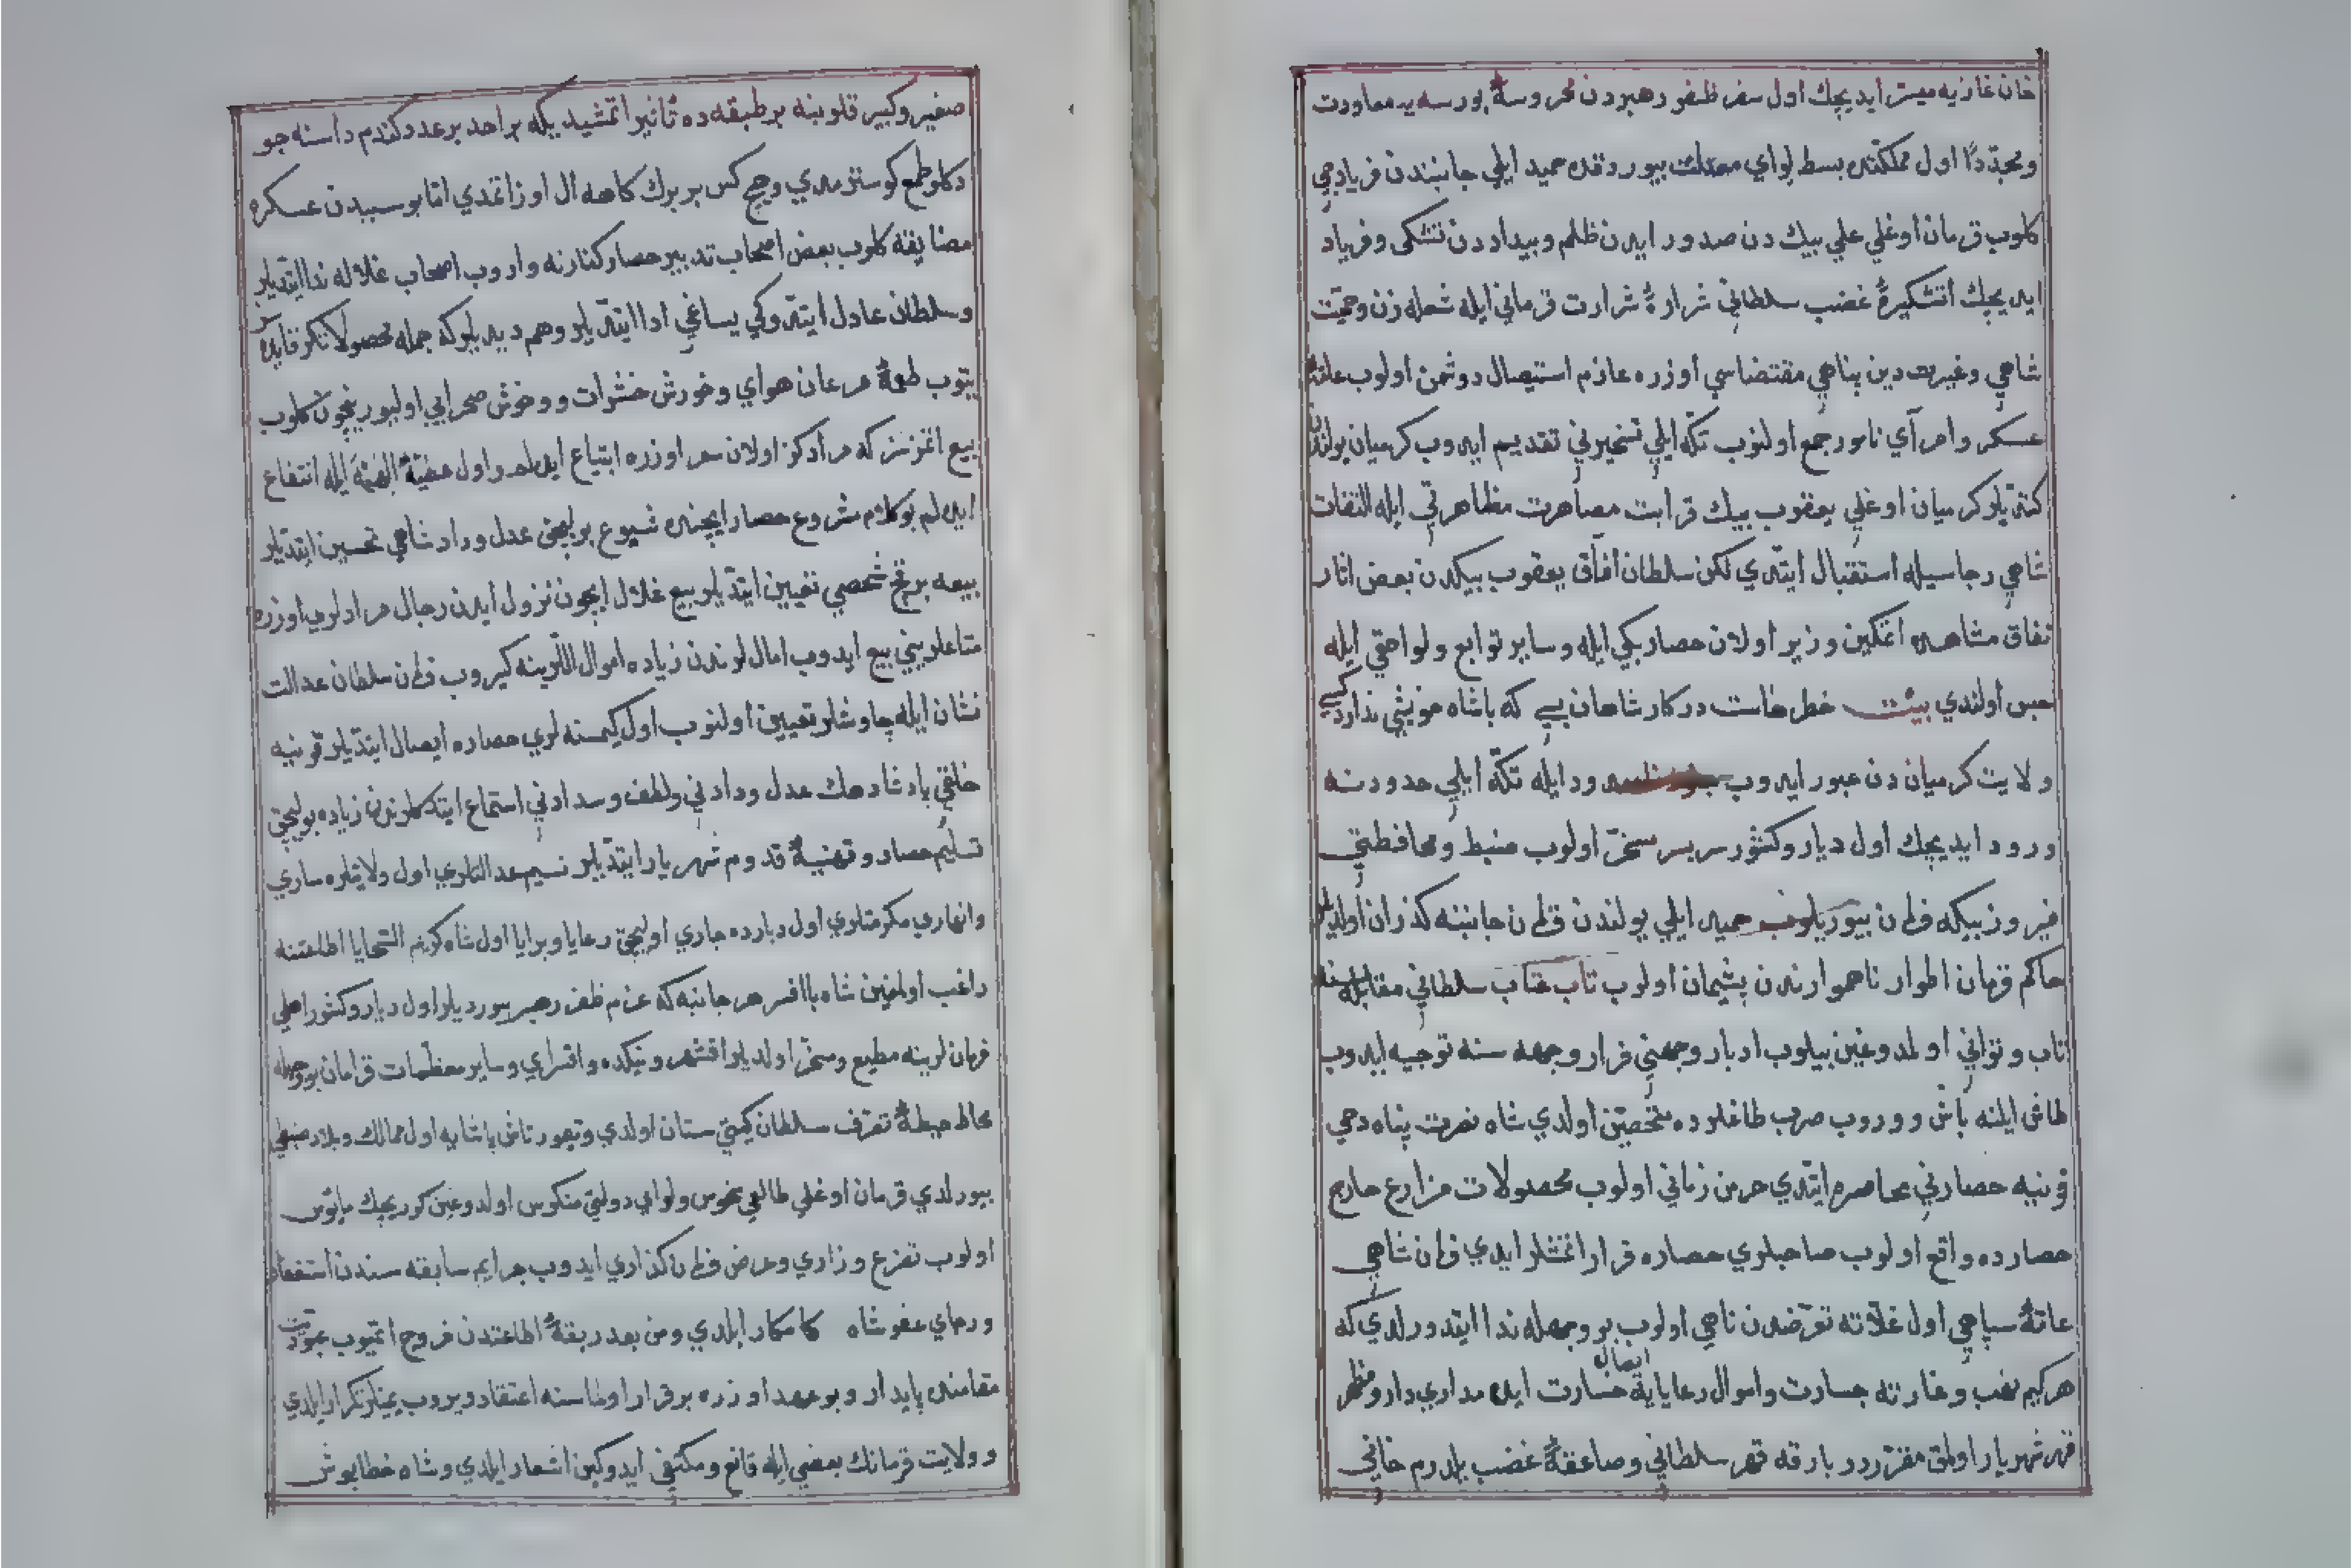 خان غازيه ميسر ايديجك اول سفر ظفر رهبردن محروسهٔ بورسه يه معاودت
ومجدّدًا اول مملكتده بسط لواي معدلت بيوردقده حميد ايلي جانبندن فريادجي
كلوب قرمان اوغلي علي بيك دن صدور ايدن ظلم وبيداد دن تشكى وفرياد
ايديجك آتشكيرهٔ غضب سلطاني شرارهٔ شرارت قرماني ايله شعله زن وحميّت
شاهي وغيرت دين پناهي مقتضاسي اوزره عازم استيصال دوشمن اولوب عامّهٔ
عسكر وامرآي نامور جمع اولنوب تكّه ايلي تسخيرني تقديم ايدوب كرميان يولندن
كتديلر كرميان اوغلي يعقوب بيك قرابت مصاهرت مظاهرتي ايله التفات
شاهي رجاسيله استقبال ايتدي لكن سلطان آفاق يعقوب بيكدن بعض اثار
نفاق مشاهده اتمكين وزير اولان حصار بكي ايله وساير توابع ولواحقي ايله
حبس اولندي بيت خطرهاست در كار شاهان بسي كه باشاه خويشي ندارد كسي
ولايت كرميان دن عبور ايدوب ودايله تكّه ايلي حدودنه
ورود ايديجك اول ديار وكشور سربسر مسخّر اولوب ضبط ومحافظتي
فيروز بيكه فرمان بيوريلوب حميد ايلي يولندن قرمان جانبنه كذران اولديلر
حاكم قرمان اطوار ناهموارندن پشيمان اولوب تاب عتاب سلطاني مقابله سنه
تاب وتواني اولمدوغين بيلوب ادبار وجهني فرار وجهه سنه توجيه ايدوب
طاش ايلنه باش ووروب صرب طاغلرده متحصّن اولدي شاه نصرت پناه دخي
قونيه حصارني محاصره ايتدي خرمن زماني اولوب محصولات مزارع خارج
حصارده واقع اولوب صاحبلري حصاره فرار اتمشلر ايدي فرمان شاهي
عامّهٔ سپاهي اول غلّاته تعرّضدن ناهي اولوب بو وجهله ندا ايتدورلدي كه
هركيم نهب وغارته جسارت واموال رعايايه ايصال خسارت ايده مداري دار ومظهر
قهر شهريار اولمق مقرّردر بارقه قهر سلطاني وصاعقهٔ غضب يلدرم خاني
صغير وكبير قلوبنه بر طبقه ده تأثير اتمشيديكه بر احد بر عدد كندم داسنه جو
دكلو طمع كوسترمدي وهيچ كس بر برك كاهه ال اوزاتمدي امّا بو سببدن عسكره
مضايقه كلوب بعض اصحاب تدبير حصار كنارنه واروب اصحاب غلاله ندا ايتديلر
وسلطان عادل ايتدوكي يساغي ادا ايتديلر وهم ديديلر كه جمله محصولاتكز
يتوب طعمهٔ مرغان هواي وخورش حشرات ووحوش صحرايي اوليور نيچون كلوب
بيع اتمزسز كه مرادكز اولان سعر اوزره ابتياع ايدلم واول ايله انتفاع
ايدلم بو كلام مشروع حصار ايچنده شيوع بوليجق عدل وداد شاهي تحسين ايتديلر
بيعه برقچ شخصي تعيين ايتديلر بيع غلال ايچون نزول ايدن رجال مرادلري اوزره
متاعلريني بيع ايدوب امال لرندن زياده اموال اللرينه كيروب فرمان سلطان عدالت
نشان ايله چاوشلر تعيين اولنوب اول كيمسنه لري حصاره ايصال ايتديلر قونيه
خلقي پادشاهك عدل ودادني ولطف وسدادني استماع ايتدكلرندن زياده بوليجق
تسليم حصار وتهنيهٔ قدوم شهريار ايتديلر نسيم عدالتلري اول ولايتلره ساري
وانهاري مكرمتلري اول ديارده جاري اوليجق رعايا وبرايا اول شاه كريم السّجايا اطاعتنه
راغب اولمغين شاه باافسر هر جانبه كه عزم ظفر رهبر بيورديلر اول ديار وكشور اهلي
فرمان لرينه مطيع ومسخّر اولديلر اقشهر ونيكده واقسراي وساير معظّمات قرامان بو وجهله
محاط حيطهٔ تصرّف سلطان كيتي ستان اولدي وتيمورتاش پاشايه اول ممالك وبلاد ضبطي
بيورلدي قرمان اوغلي طالعي منحوس ولواي دولتي منكوس اولدوغين كوريجك مأيوس
اولوب تضرّع وزاري وعرض فرمان كذاري ايدوب جرايم سابقه سندن استعفا
ورجاي عفو شاه كامكار ايلدي ومن بعد ربقهٔ اطاعتدن خروج اتميوب عبوديت
مقامنده پايدار وبو عهد اوزره برقرار اولماسنه اعتقاد ويروب يمينلر تكرار ايلدي
وولايت قرمانك بعضي ايله قانع ومكتفي ايدوكين اشعار ايلدي وشاه خطاپوش